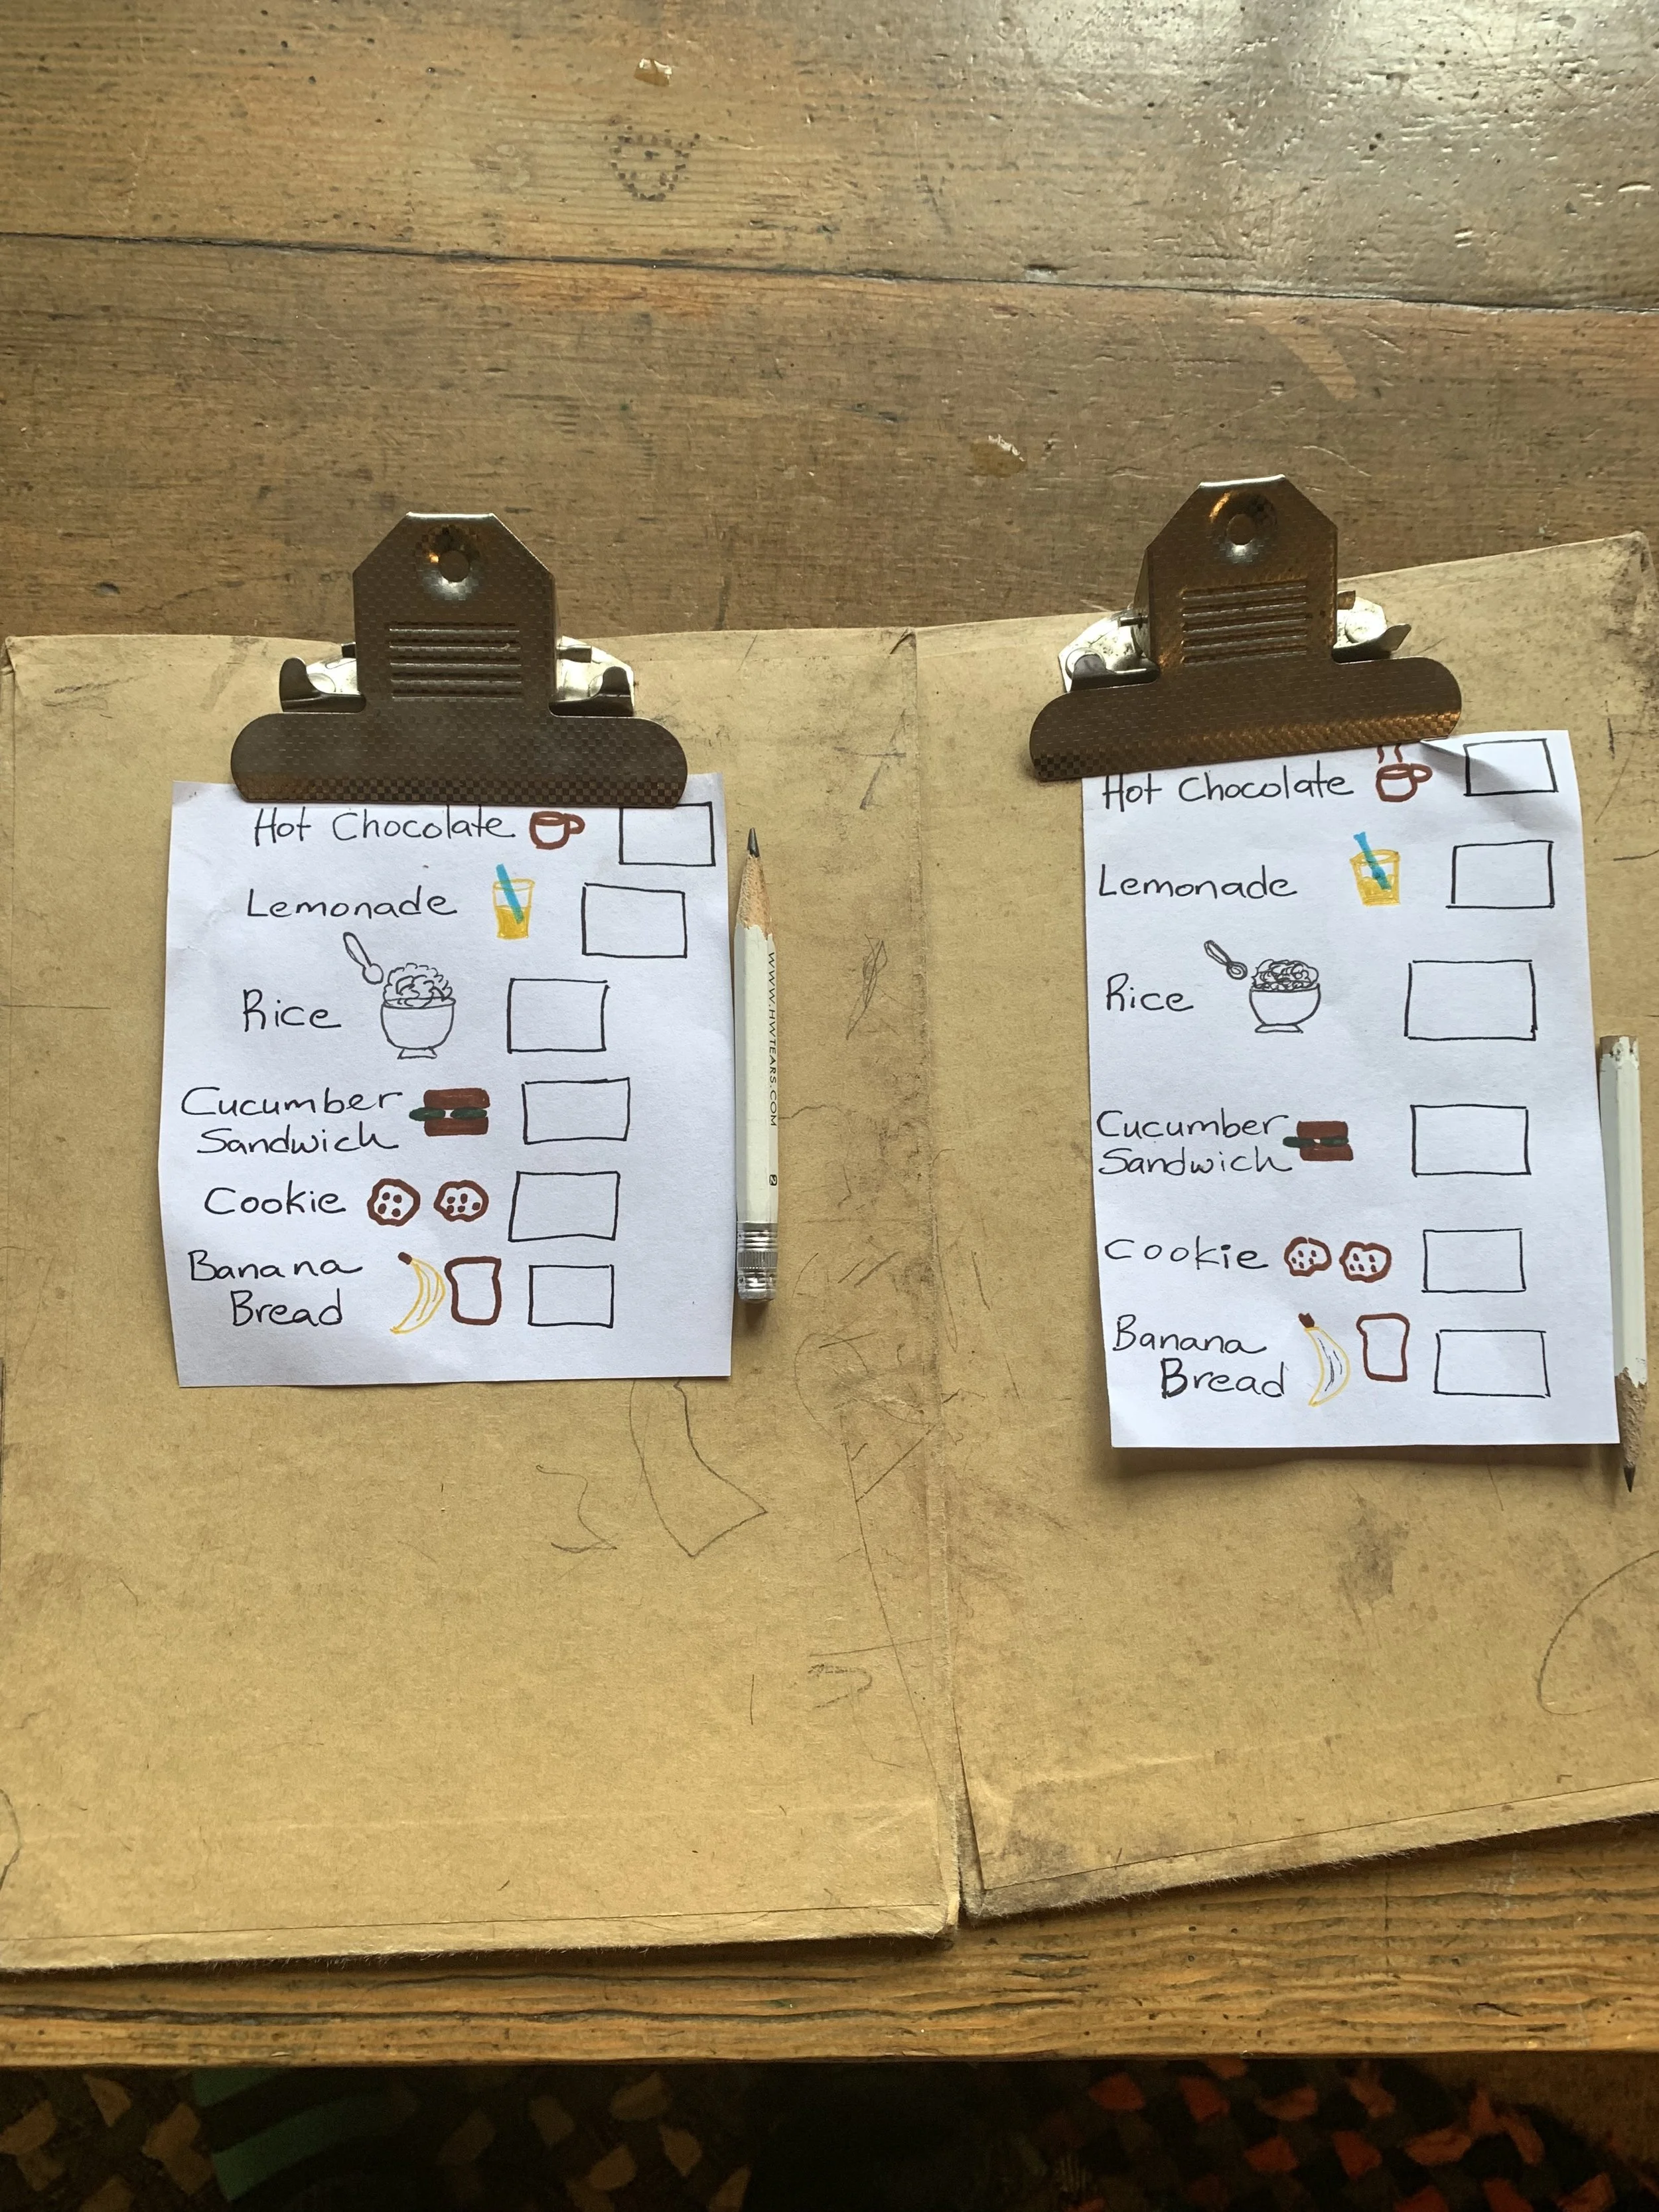 Hot Chocolate
Lemonade
Rice
Cucumber
Sandwich
Cookie
Banana
Bread
WWW.HWTEARS.COM 2
Hot Chocolate
Lemonade
Rice
Cucumber
Sandwich
Cookie
Banana
Bread